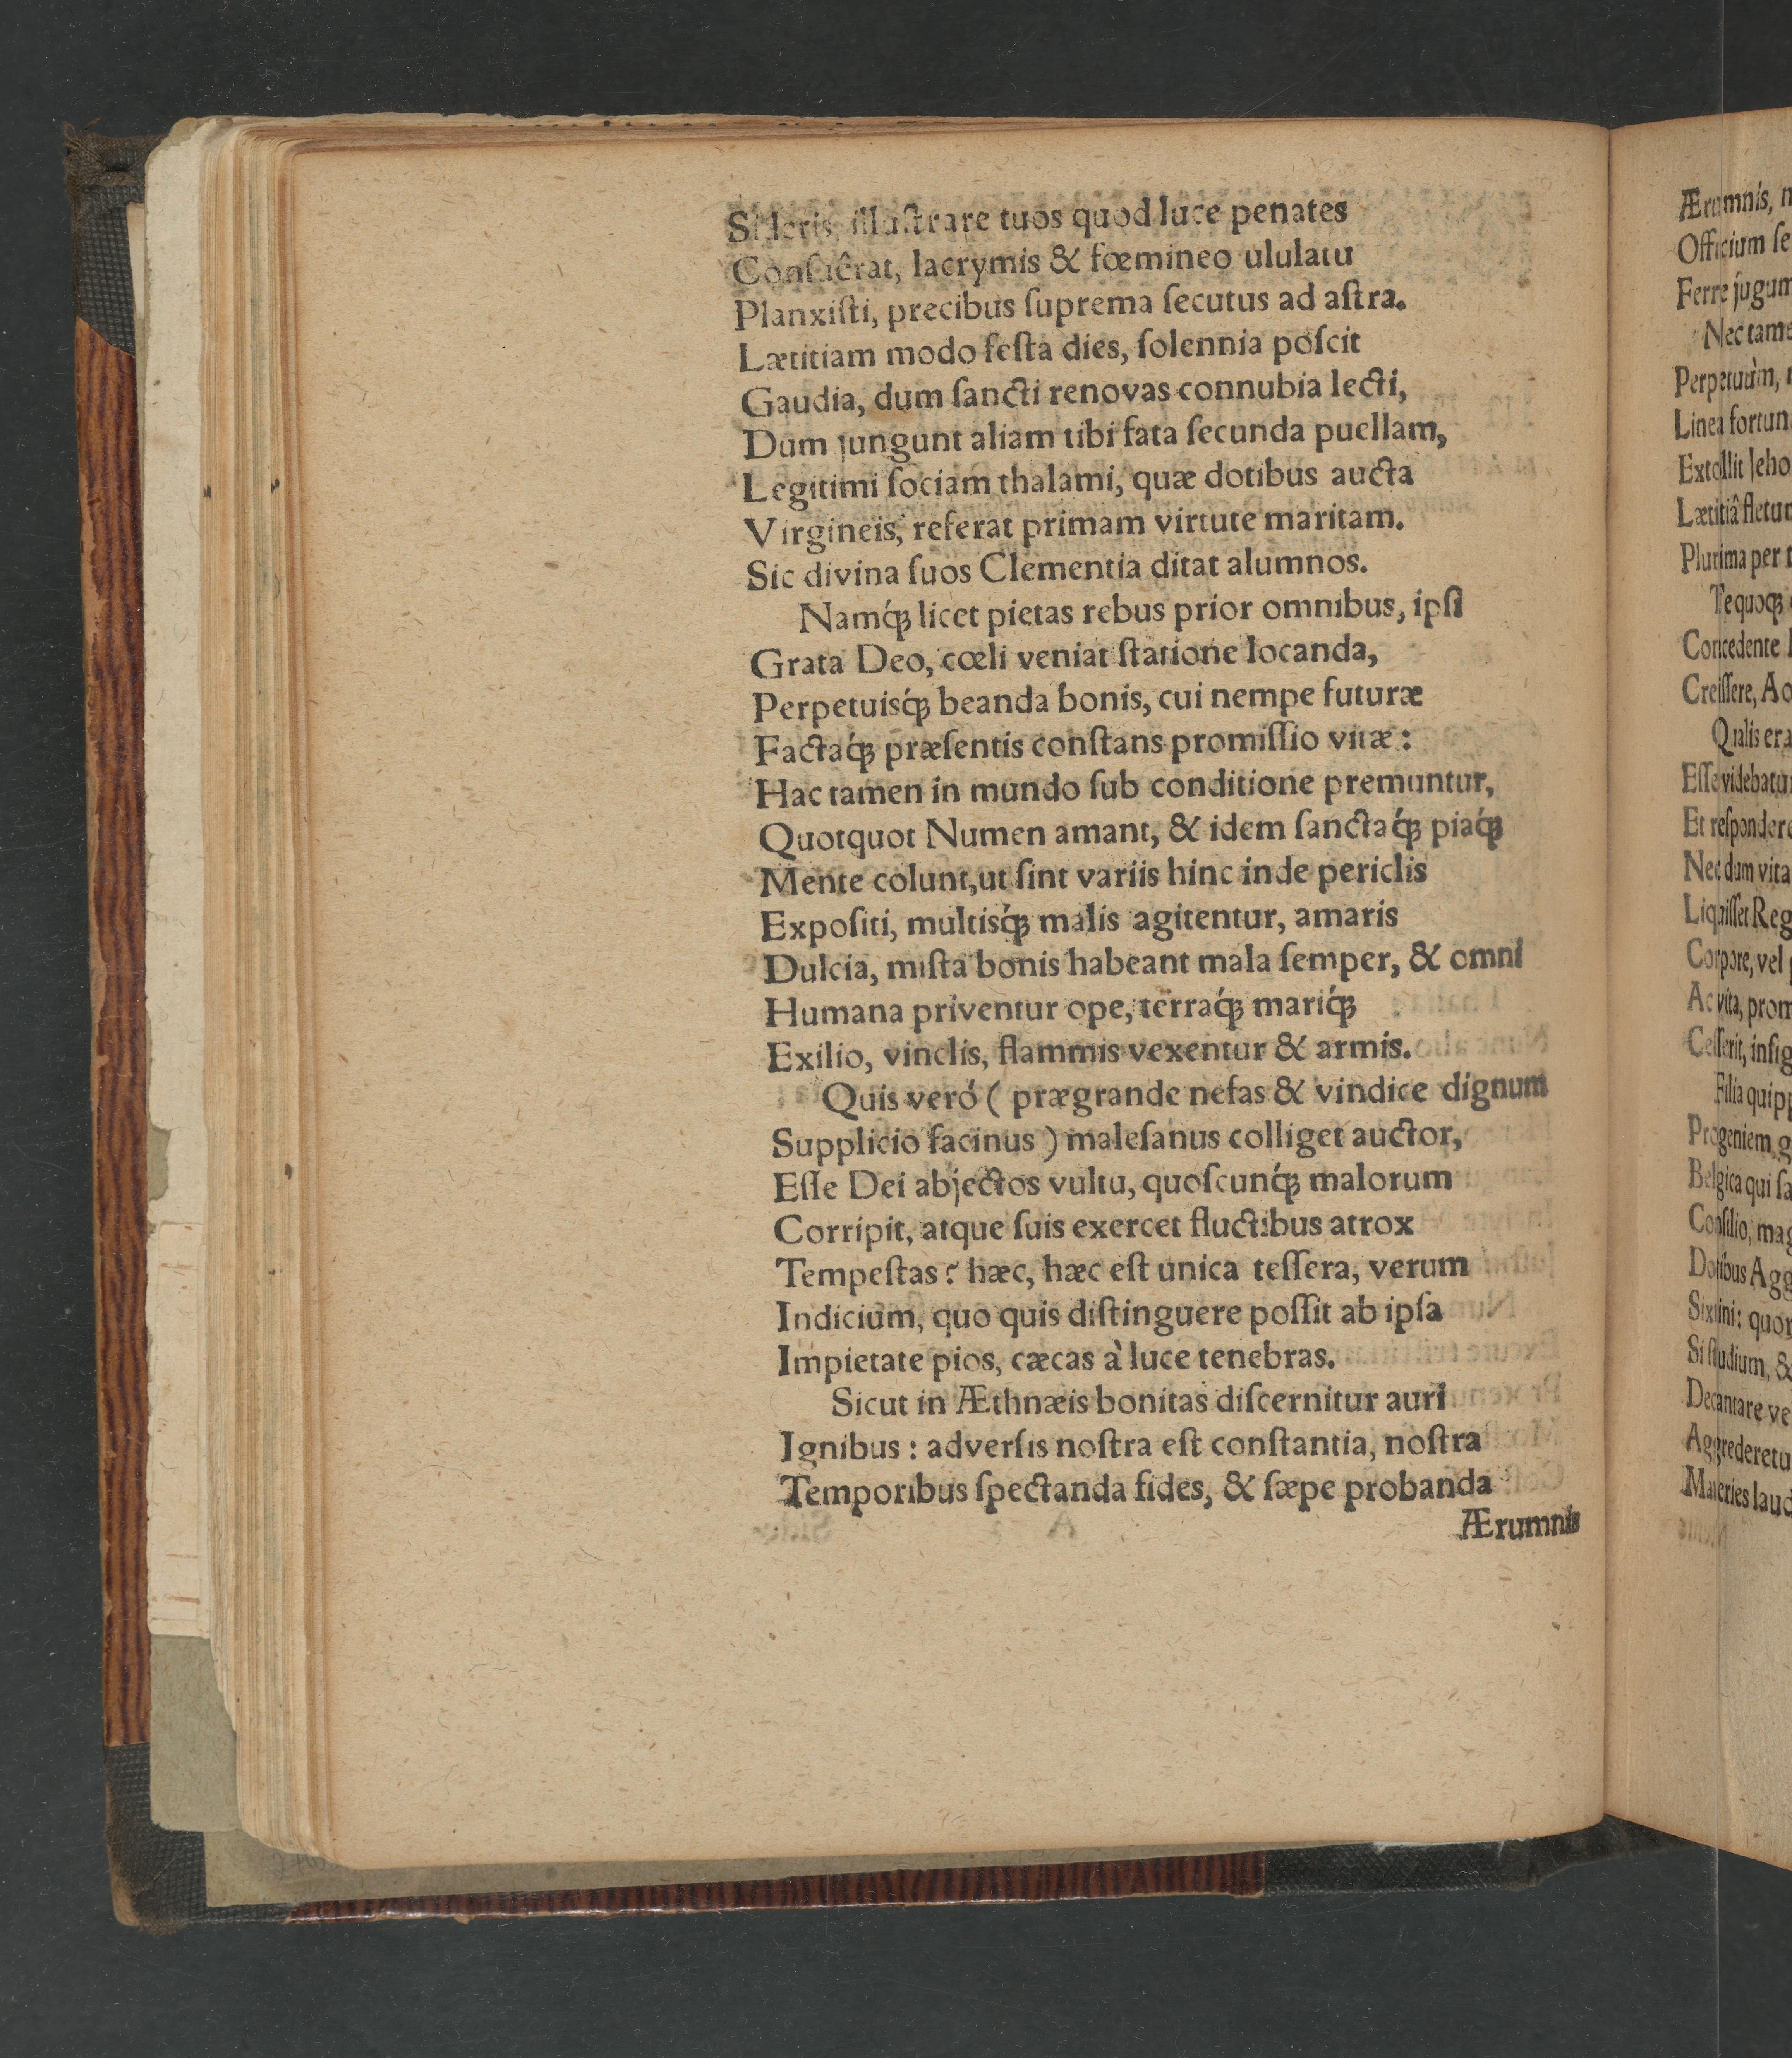 Sideris, illuſtrare tuos quod luce penates
Conſuêrat, lacrymis & fœmineo ululatu
Planxiſti, precibus ſuprema ſecutus ad aſtra.
Lætitiam modo feſta dies, ſolennia poſcit
Gaudia, dum ſancti renovas connubia lecti,
Dum jungunt aliam tibi fata ſecunda puellam,
Legitimi ſociam thalami, quæ dotibus aucta
Virgineis, referat primam virtute maritam.
Sic divina ſuos Clementia ditat alumnos.
Namq́; licet pietas rebus prior omnibus, ipſi
Grata Deo, cœli veniat ſtatione locanda,
Perpetuisq́; beanda bonis, cui nempe futuræ
Factaq́; præſentis conſtans promiſſio vitæ:
Hac tamen in mundo ſub conditione premuntur,
Quotquot Numen amant, & idem ſanctaq́; piaq́;
Mente colunt, ut ſint variis hinc inde periclis
Expoſiti, multisq́; malis agitentur, amaris
Dulcia, miſta bonis habeant mala ſemper, & omni
Humana priventur ope, terraq́; mariq́;
Exilio, vinclis, flammis vexentur & armis.
Quis veró ( prægrande nefas & vindice dignum
Supplicio facinus ) maleſanus colliget auctor,
Eſſe Dei abjectos vultu, quoſcunq́; malorum
Corripit, atque ſuis exercet fluctibus atrox
Tempeſtas? hæc, hæc eſt unica teſſera, verum
Indicium, quo quis diſtinguere poſſit ab ipſa
Impietate pios, cæcas à luce tenebras.
Sicut in Æthnæis bonitas diſcernitur auri
Ignibus: adverſis noſtra eſt conſtantia, noſtra
Temporibus ſpectanda fides, & ſæpe probanda
Ærumnis
Ærumnis,
Officium
Ferre
Nec
Perpetuùm,
Linea
Extollit
Lætitiâ
Plurima per
Te quoq;
Concedente
Creiſſere,
Qualis
Eſſe
Et
Nec dum vita
Liquiſſet
Corpore, vel
Ac vita,
Ceſſerit,
Filia
Progeniem,
Belgica qui
Conſilio,
Dotibus
Sixtini:
Si ſtudium, &
Decantare
Materies